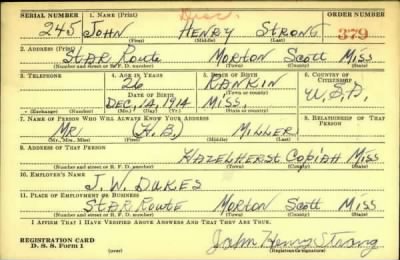 Disc.
SERIAL NUMBER 1. NAME (Print) ORDER NUMBER
245 JOHN HENRY STRONG 379
(First) (Middle) (Last)
2. ADDRESS (Print)
STAR Route MORTON Scott MISS
(Number and street or R. F. D. number) (Town) (County) (State)
3. TELEPHONE 4. AGE IN YEARS 5. PLACE OF BIRTH 6. COUNTRY OF CITIZENSHIP
26 RANKIN
(Town or county)
DATE OF BIRTH U.S.A.
DEC. 12, 1914 MISS.
(Exchange) (Number) (Mo.) (Day) (Yr.) (State or country)
7. NAME OF PERSON WHO WILL ALWAYS KNOW YOUR ADDRESS 8. RELATIONSHIP OF THAT PERSON
MR. (H.B.) MILLER
(Mr., Mrs., Miss) (First) (Middle) (Last)
9. ADDRESS OF THAT PERSON
HAZELHERST COPIAH MISS
(Number and street or R. F. D. number) (Town) (County) (State)
10. EMPLOYER'S NAME
J. W. DUKES
11. PLACE OF EMPLOYMENT OR BUSINESS
STAR ROUTE MORTON Scott MISS
(Number and street or R. F. D. number) (Town) (County) (State)
I AFFIRM THAT I HAVE VERIFIED ABOVE ANSWERS AND THAT THEY ARE TRUE.
REGISTRATION CARD
D. S. S. Form 1 (over) John Henry Strong
(Registrant's signature)